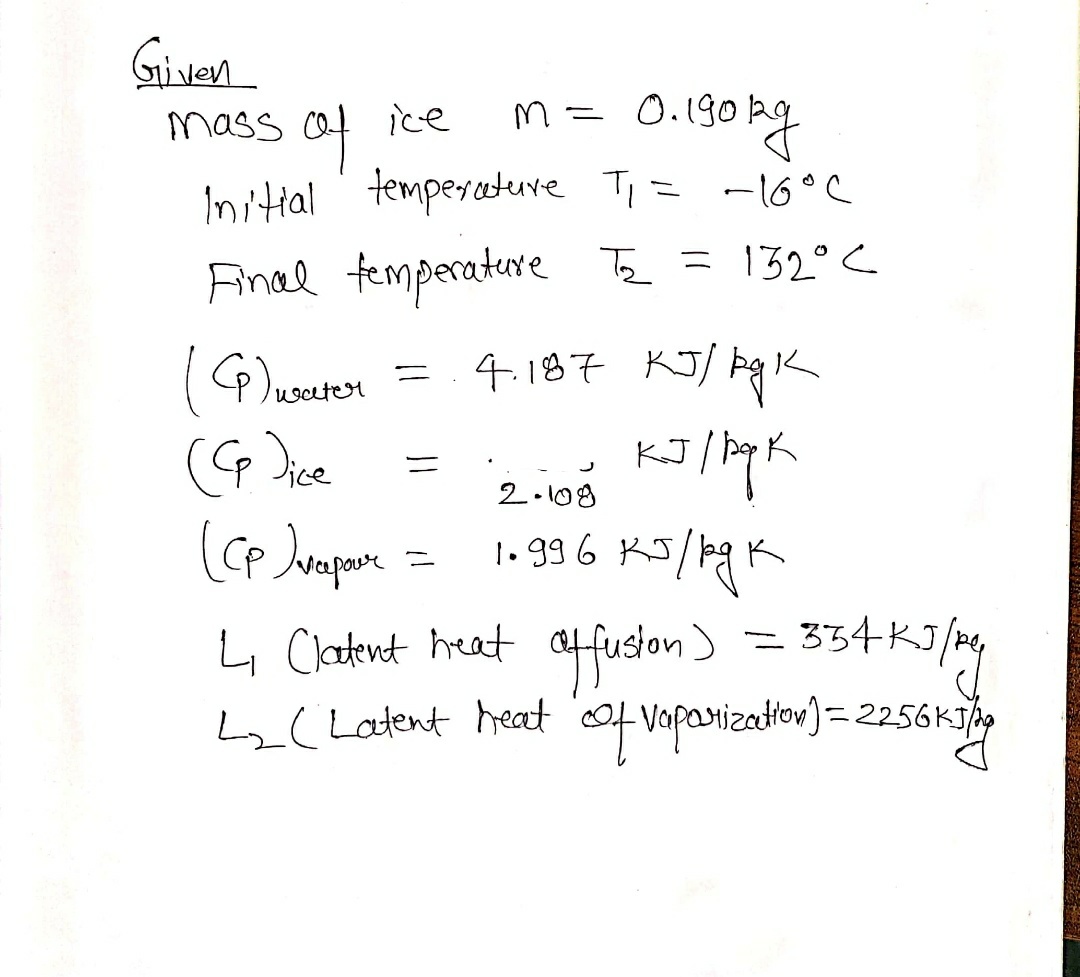 Given
mass of ice m = 0.190 kg
Initial temperature T₁ = -16°C
Final temperature T₂ = 132°C
(Cp)water = 4.187 KJ/kgK
(Cp)ice = 2.108 KJ/kgK
(Cp)vapour = 1.996 KJ/kgK
L₁ (latent heat of fusion) = 334 KJ/kg
L₂ (Latent heat of Vaporization) = 2256 KJ/kg